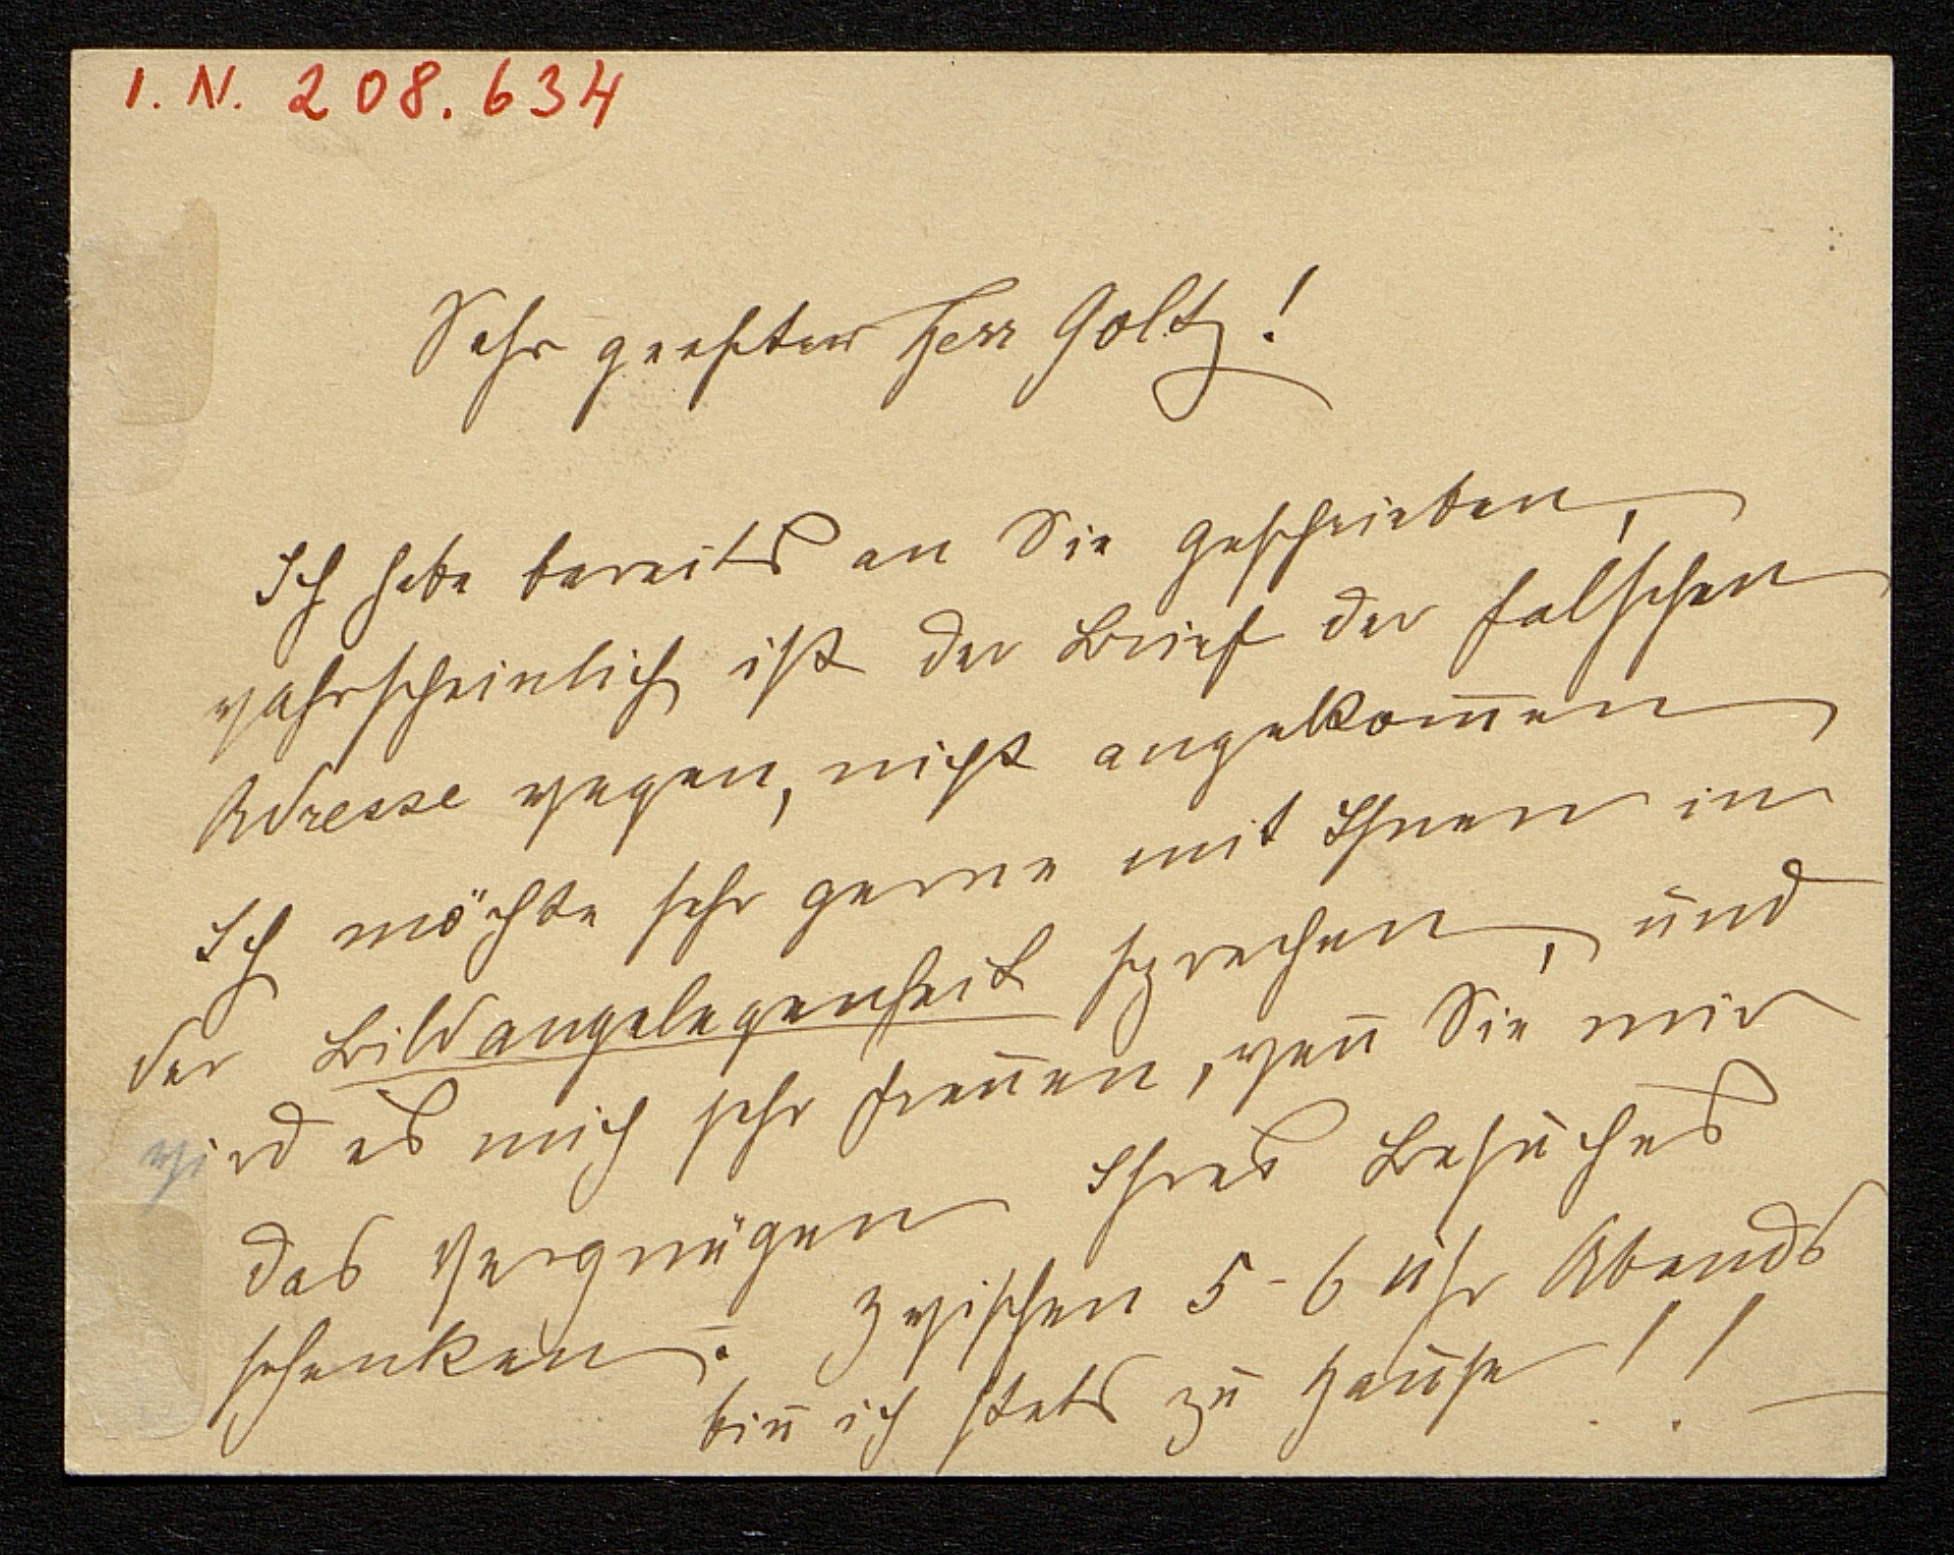 I. N. 208.634
Sehr geehrter Herr Goltz!
Ich habe bereits an Sie geschrieben,
wahrscheinlich ist der Brief der falschen
Adresse wegen, nicht angekom̅en
Ich möchte sehr gerne mit Ihnen in
der Bildangelegenheit sprechen, und
wird es mich sehr freuen, wen̅ Sie mir
das Vergnügen Ihres Besuches
schenken. Zwischen 5-6 Uhr Abends
bin̅ ich stets zu Hause!! —